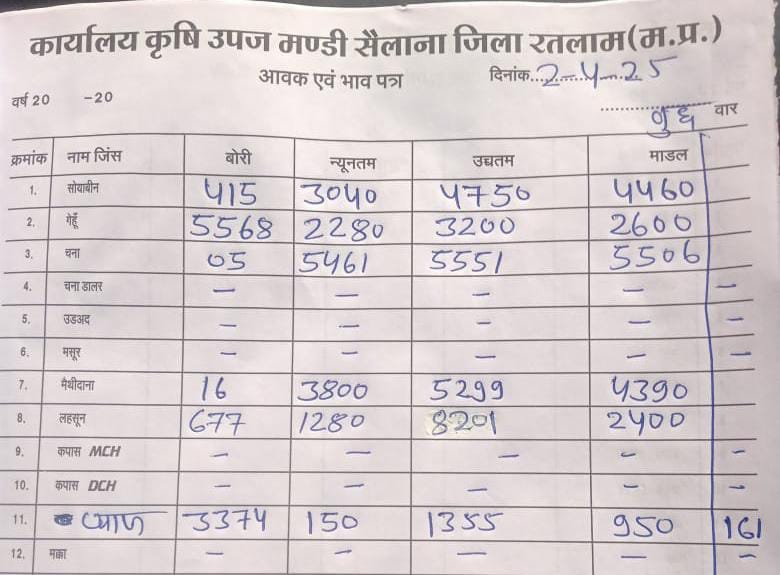 कार्यालय कृषि उपज मण्डी सैलाना जिला रतलाम(म.प्र.)
आवक एवं भाव पत्र दिनांक...2-4-25
वर्ष 20 -20 बुध वार
क्रमांक नाम जिंस बोरी न्यूनतम उच्चतम माडल
1. सोयाबीन 415 3040 4750 4460
2. गेहूँ 5568 2280 3200 2600
3. चना 05 5461 5551 5506
4. चना डालर — — — — —
5. उडअद — — — — —
6. मसूर — — — — —
7. मैथीदाना 16 3800 5299 4390
8. लहसून 677 1280 8201 2400
9. कपास MCH — — — — —
10. कपास DCH — — — — —
11. प्याज 3374 150 1355 950 161
12. मक्का — — — — —